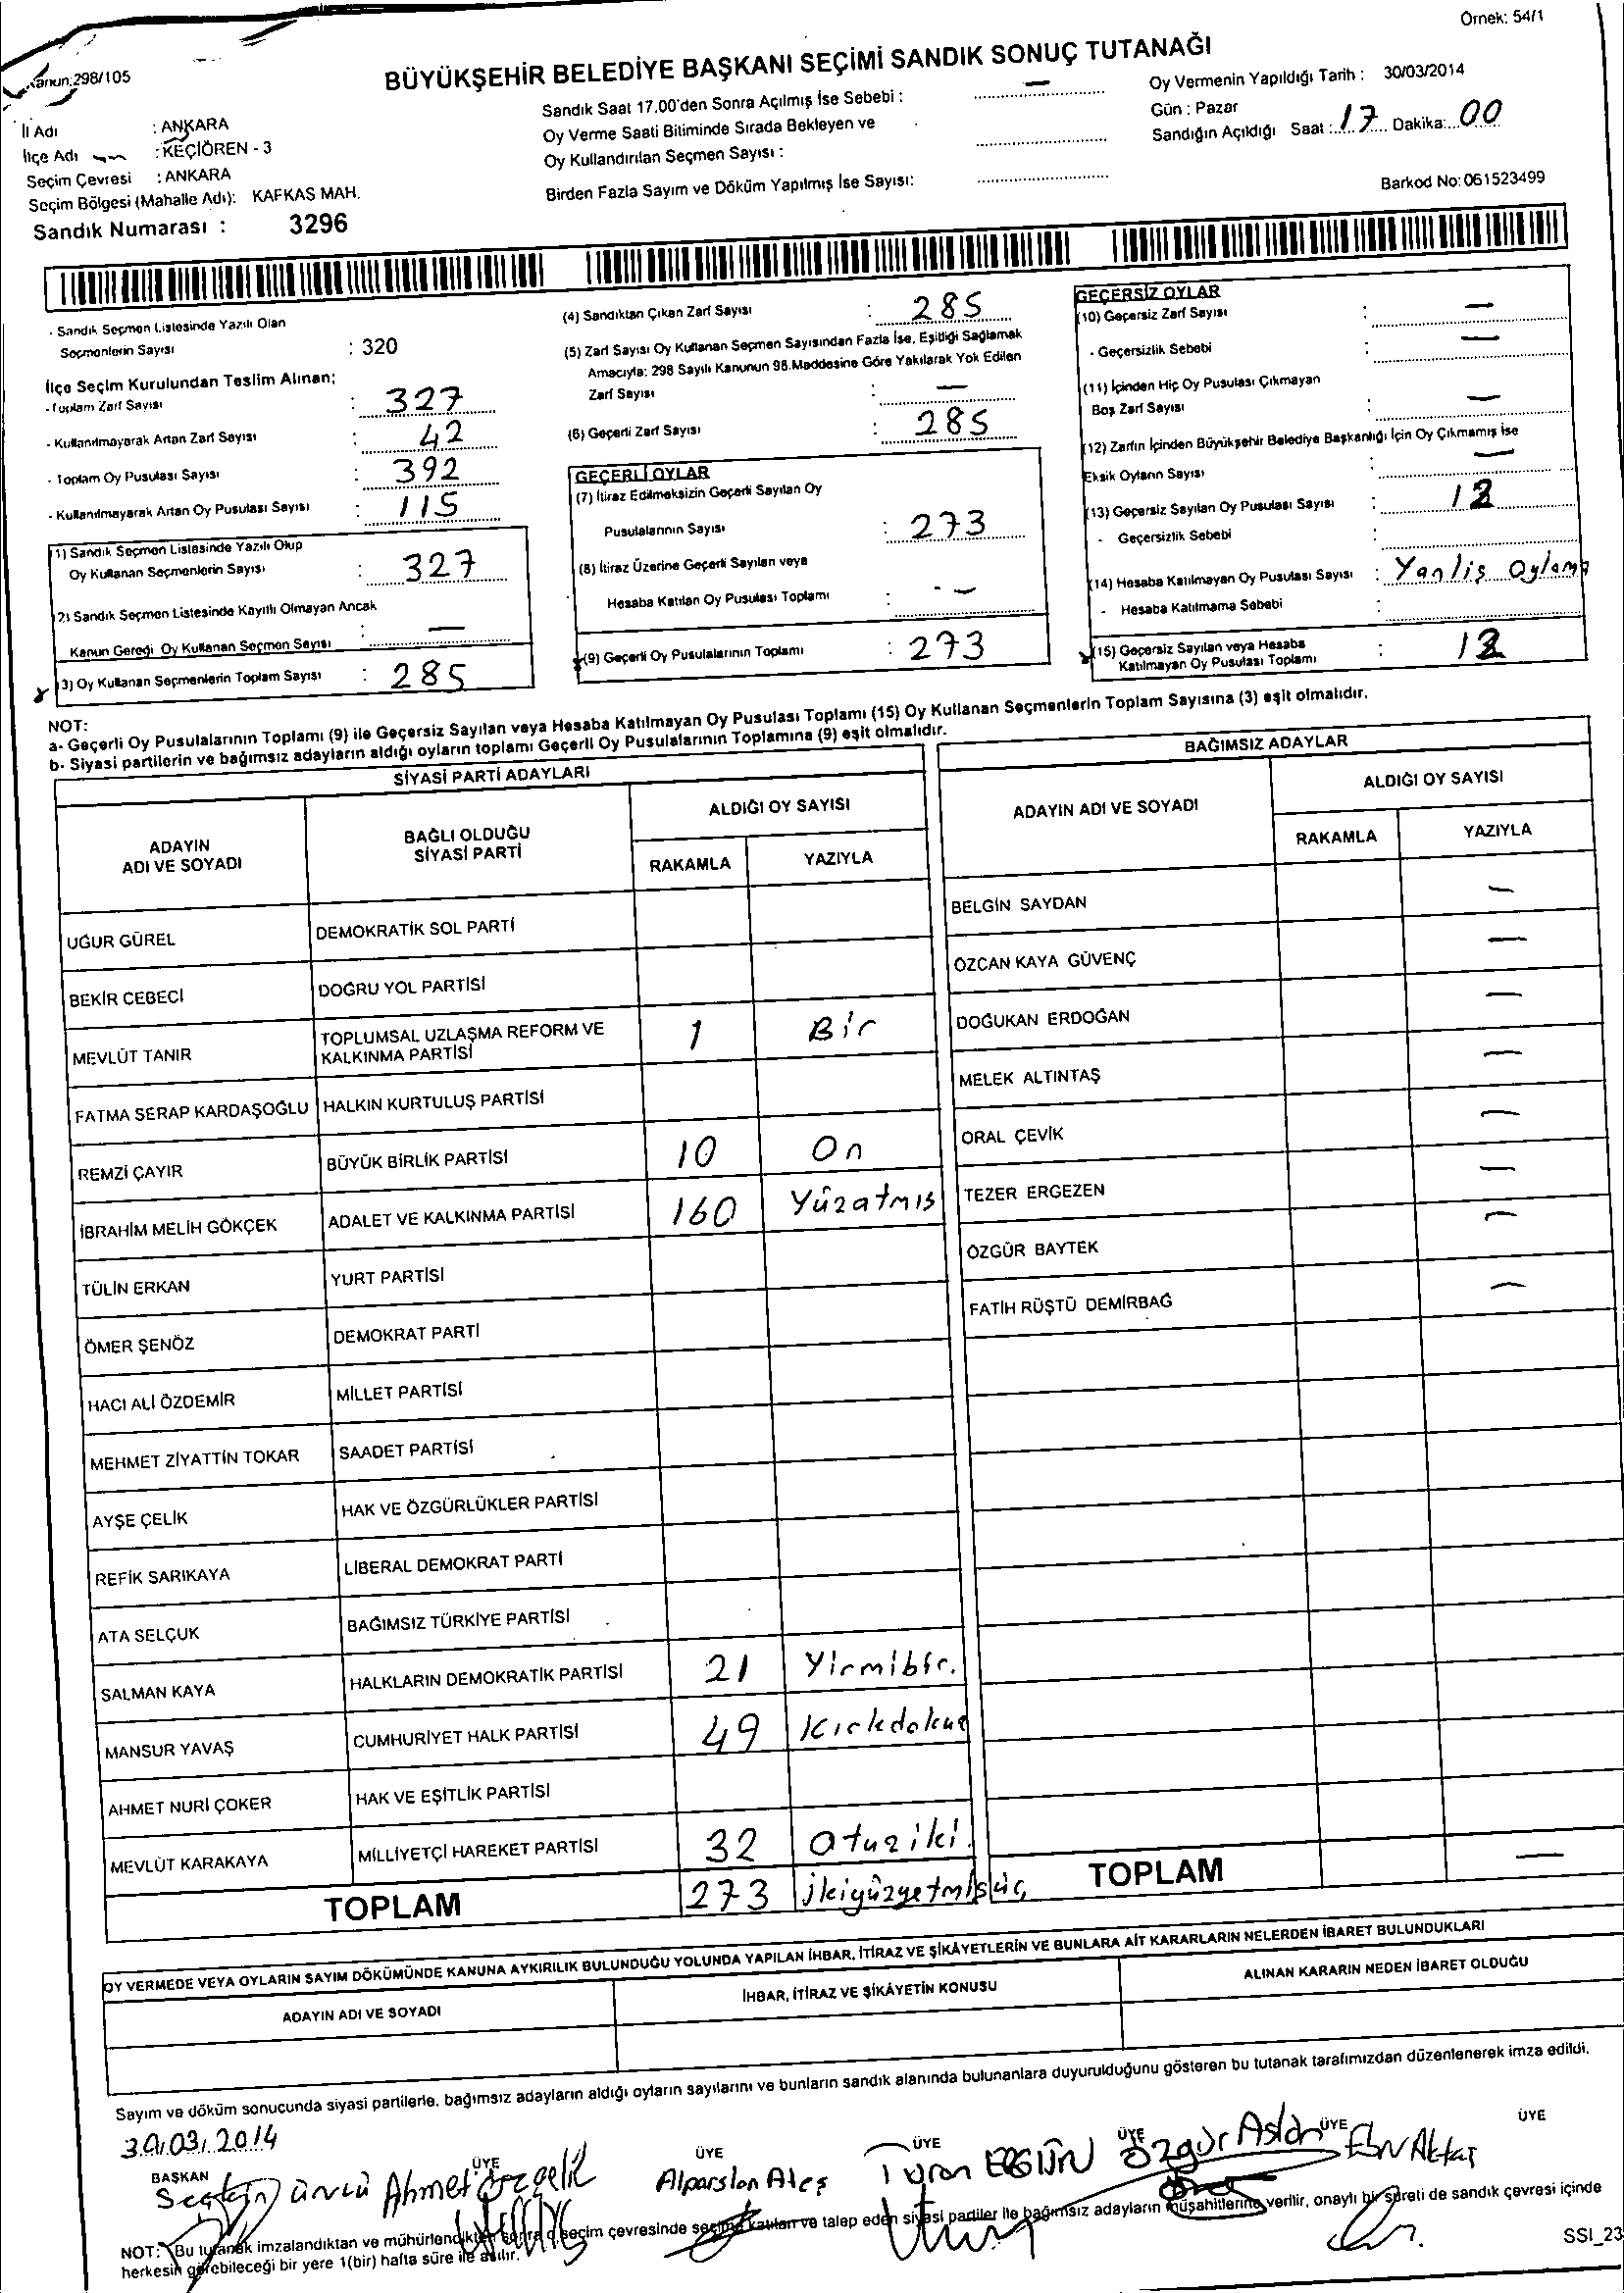 Örnek: 54/1
Kanun:298/105
BÜYÜKŞEHİR BELEDİYE BAŞKANI SEÇİMİ SANDIK SONUÇ TUTANAĞI
İl Adı : ANKARA
İlçe Adı : KEÇİÖREN - 3
Seçim Çevresi : ANKARA
Seçim Bölgesi (Mahalle Adı): KAFKAS MAH.
Sandık Numarası : 3296
Sandık Saat 17.00'den Sonra Açılmış İse Sebebi : —
Oy Verme Saati Bitiminde Sırada Bekleyen ve
Oy Kullandırılan Seçmen Sayısı :
Birden Fazla Sayım ve Döküm Yapılmış İse Sayısı:
Oy Vermenin Yapıldığı Tarih : 30/03/2014
Gün : Pazar
Sandığın Açıldığı Saat : 17 Dakika: 00
Barkod No: 061523499
- Sandık Seçmen Listesinde Yazılı Olan
Seçmenlerin Sayısı : 320
İlçe Seçim Kurulundan Teslim Alınan;
- Toplam Zarf Sayısı : 327
- Kullanılmayarak Artan Zarf Sayısı : 42
- Toplam Oy Pusulası Sayısı : 392
- Kullanılmayarak Artan Oy Pusulası Sayısı : 115
(1) Sandık Seçmen Listesinde Yazılı Olup
Oy Kullanan Seçmenlerin Sayısı : 327
(2) Sandık Seçmen Listesinde Kayıtlı Olmayan Ancak
Kanun Gereği Oy Kullanan Seçmen Sayısı : —
(3) Oy Kullanan Seçmenlerin Toplam Sayısı : 285
(4) Sandıktan Çıkan Zarf Sayısı : 285
(5) Zarf Sayısı Oy Kullanan Seçmen Sayısından Fazla İse, Eşitliği Sağlamak
Amacıyla; 298 Sayılı Kanunun 98.Maddesine Göre Yakılarak Yok Edilen
Zarf Sayısı : —
(6) Geçerli Zarf Sayısı : 285
GEÇERLİ OYLAR
(7) İtiraz Edilmeksizin Geçerli Sayılan Oy
Pusulalarının Sayısı : 273
(8) İtiraz Üzerine Geçerli Sayılan veya
Hesaba Katılan Oy Pusulası Toplamı : —
(9) Geçerli Oy Pusulalarının Toplamı : 273
GEÇERSİZ OYLAR
(10) Geçersiz Zarf Sayısı : —
- Geçersizlik Sebebi : —
(11) İçinden Hiç Oy Pusulası Çıkmayan
Boş Zarf Sayısı : —
(12) Zarfın İçinden Büyükşehir Belediye Başkanlığı İçin Oy Çıkmamış İse
Eksik Oyların Sayısı : —
(13) Geçersiz Sayılan Oy Pusulası Sayısı : 12
- Geçersizlik Sebebi :
(14) Hesaba Katılmayan Oy Pusulası Sayısı : Yanlis oylama
- Hesaba Katılmama Sebebi :
(15) Geçersiz Sayılan veya Hesaba
Katılmayan Oy Pusulası Toplamı : 12
NOT:
a- Geçerli Oy Pusulalarının Toplamı (9) ile Geçersiz Sayılan veya Hesaba Katılmayan Oy Pusulası Toplamı (15) Oy Kullanan Seçmenlerin Toplam Sayısına (3) eşit olmalıdır.
b- Siyasi partilerin ve bağımsız adayların aldığı oyların toplamı Geçerli Oy Pusulalarının Toplamına (9) eşit olmalıdır.
SİYASİ PARTİ ADAYLARI
ADAYIN ADI VE SOYADI
BAĞLI OLDUĞU SİYASİ PARTİ
ALDIĞI OY SAYISI
RAKAMLA YAZIYLA
UĞUR GÜREL DEMOKRATİK SOL PARTİ
BEKİR CEBECİ DOĞRU YOL PARTİSİ
MEVLÜT TANIR TOPLUMSAL UZLAŞMA REFORM VE KALKINMA PARTİSİ 1 Bir
FATMA SERAP KARDAŞOĞLU HALKIN KURTULUŞ PARTİSİ
REMZİ ÇAYIR BÜYÜK BİRLİK PARTİSİ 10 On
İBRAHİM MELİH GÖKÇEK ADALET VE KALKINMA PARTİSİ 160 Yüzatmıs
TÜLİN ERKAN YURT PARTİSİ
ÖMER ŞENÖZ DEMOKRAT PARTİ
HACI ALİ ÖZDEMİR MİLLET PARTİSİ
MEHMET ZİYATTİN TOKAR SAADET PARTİSİ
AYŞE ÇELİK HAK VE ÖZGÜRLÜKLER PARTİSİ
REFİK SARIKAYA LİBERAL DEMOKRAT PARTİ
ATA SELÇUK BAĞIMSIZ TÜRKİYE PARTİSİ
SALMAN KAYA HALKLARIN DEMOKRATİK PARTİSİ 21 Yirmibir.
MANSUR YAVAŞ CUMHURİYET HALK PARTİSİ 49 Kırkdokuz
AHMET NURİ ÇOKER HAK VE EŞİTLİK PARTİSİ
MEVLÜT KARAKAYA MİLLİYETÇİ HAREKET PARTİSİ 32 otuziki.
TOPLAM 273 ikiyüzyetmişüç
BAĞIMSIZ ADAYLAR
ADAYIN ADI VE SOYADI
ALDIĞI OY SAYISI
RAKAMLA YAZIYLA
BELGİN SAYDAN —
ÖZCAN KAYA GÜVENÇ —
DOĞUKAN ERDOĞAN —
MELEK ALTINTAŞ —
ORAL ÇEVİK —
TEZER ERGEZEN —
ÖZGÜR BAYTEK —
FATİH RÜŞTÜ DEMİRBAĞ —
TOPLAM —
OY VERMEDE VEYA OYLARIN SAYIM DÖKÜMÜNDE KANUNA AYKIRILIK BULUNDUĞU YOLUNDA YAPILAN İHBAR, İTİRAZ VE ŞİKÂYETLERİN VE BUNLARA AİT KARARLARIN NELERDEN İBARET BULUNDUKLARI
ADAYIN ADI VE SOYADI
İHBAR, İTİRAZ VE ŞİKÂYETİN KONUSU
ALINAN KARARIN NEDEN İBARET OLDUĞU
Sayım ve döküm sonucunda siyasi partilerle, bağımsız adayların aldığı oyların sayılarını ve bunların sandık alanında bulunanlara duyurulduğunu gösteren bu tutanak tarafımızdan düzenlenerek imza edildi.
30.03.2014
BAŞKAN ÜYE ÜYE ÜYE ÜYE ÜYE ÜYE
Ahmet Alparslan Ateş Turan ERGÜN Özgür Aslan
NOT: Bu tutanak imzalandıktan ve mühürlendikten sonra o seçim çevresinde seçime katılan ve talep eden siyasi partiler ile bağımsız adayların müşahitlerine verilir, onaylı bir sureti de sandık çevresi içinde
herkesin görebileceği bir yere 1(bir) hafta süre ile asılır.
SSI_23